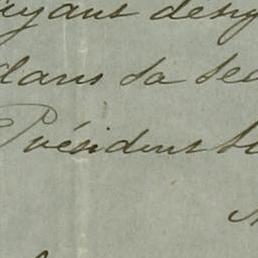 ayant desig
dans sa sea
Président